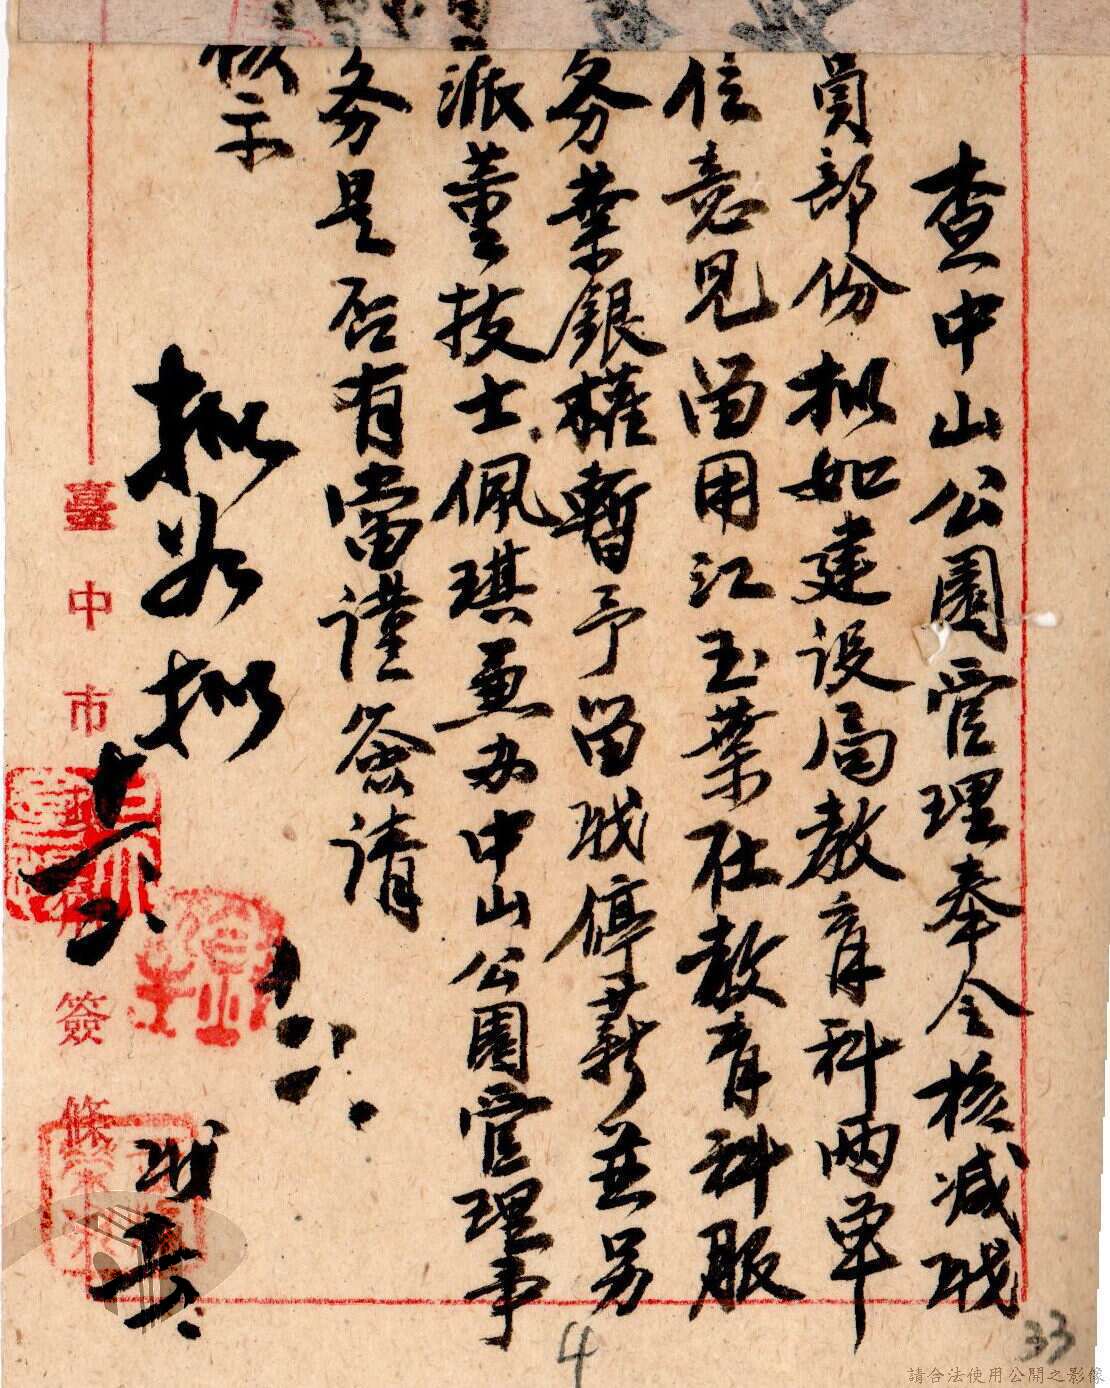 查中山公園管理奉令核減职
員部份拟如建設局教育科兩單
位意見留用江玉葉在教育科服
务葉銀權暫予留职停薪並另
派董技士佩琪兼办中山公園管理事
务是否有當謹簽請
核示
拟如拟
臺中市
簽條
4
33
請合法使用公開之影像